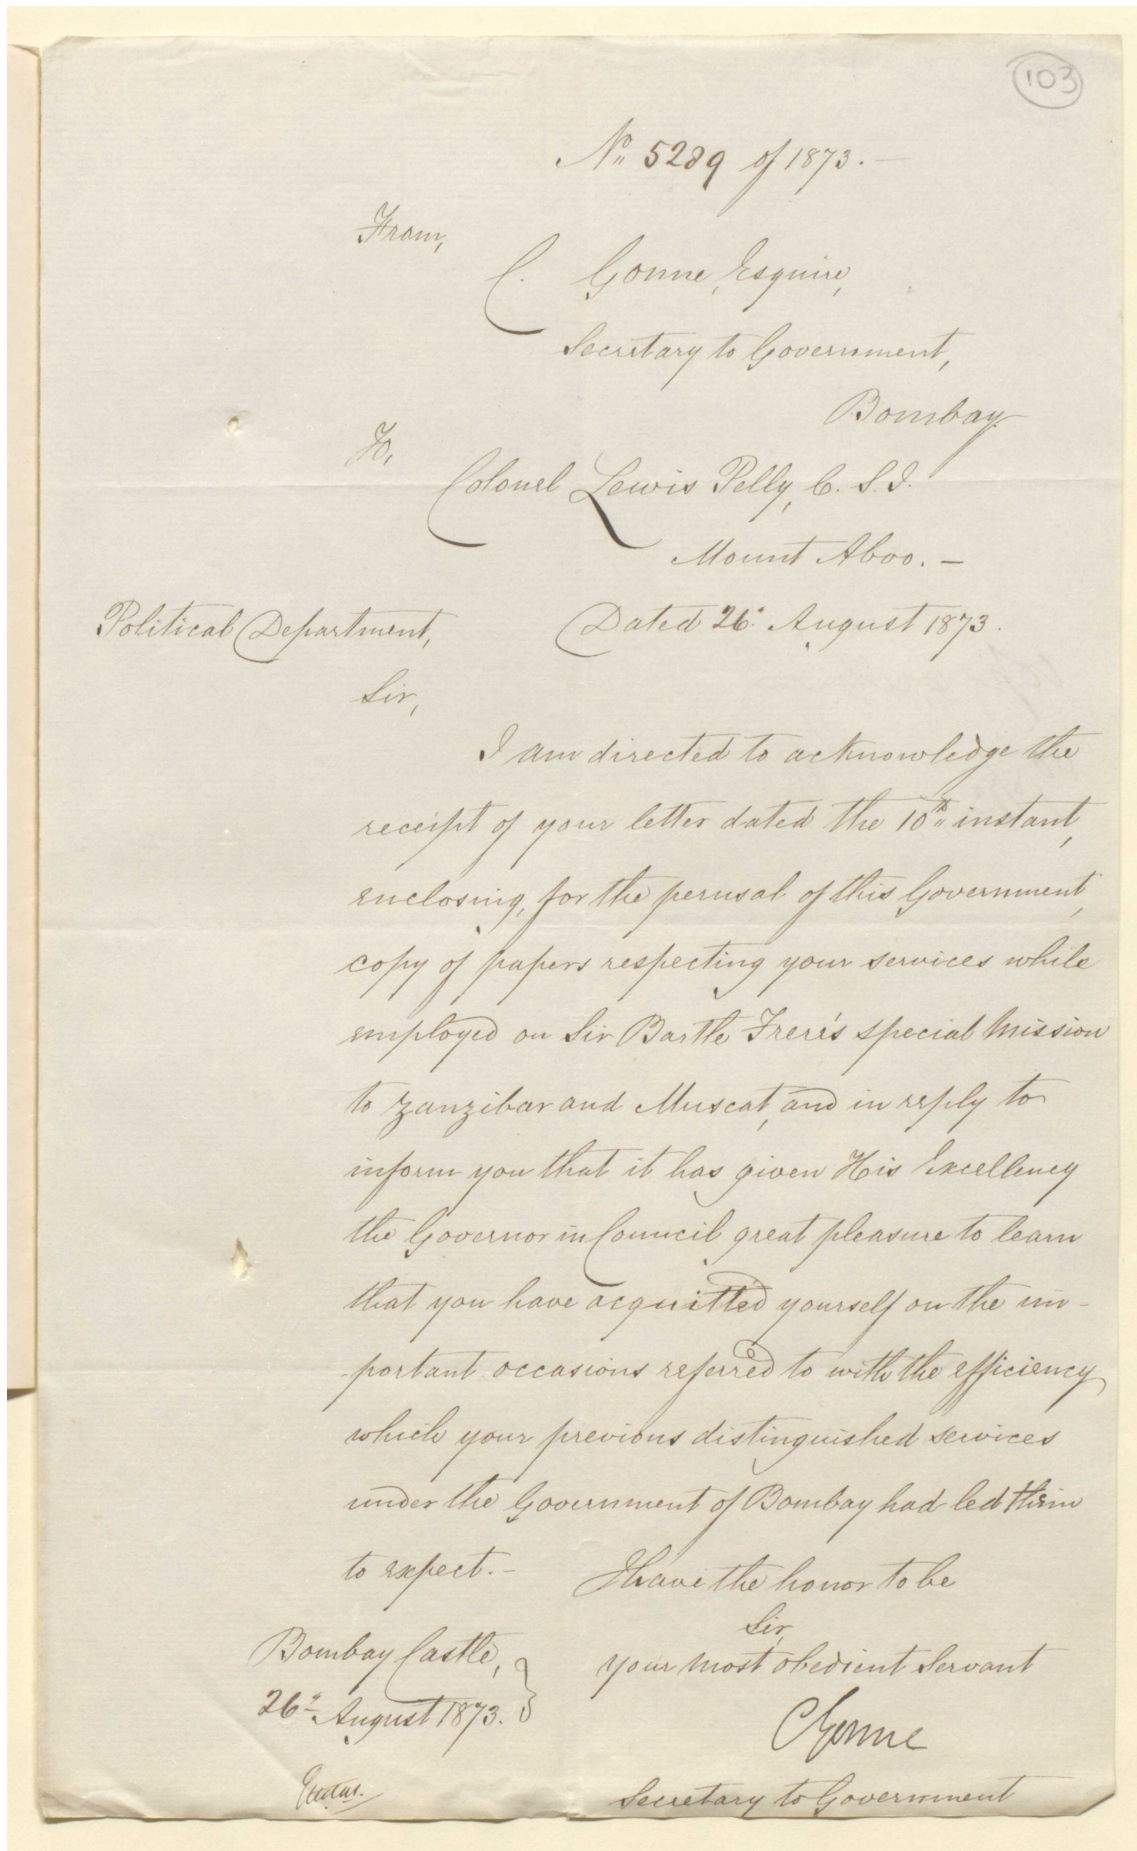 103
No 5289 of 1873.—
From,
C. Gonne, Esquire,
Secretary to Government,
Bombay
To,
Colonel Lewis Pelly, C. S. I.
Mount Aboo.—
Political Department,
Dated 26th August 1873.
Sir,
I am directed to acknowledge the
receipt of your letter dated the 10th instant,
enclosing, for the perusal of this Government,
copy of papers respecting your services while
employed on Sir Bartle Frere's special Mission
to Zanzibar and Muscat, and in reply to
inform you that it has given His Excellency
the Governor in Council great pleasure to learn
that you have acquitted yourself on the im-
-portant occasions referred to with the efficiency
which your previous distinguished services
under the Government of Bombay had led them
to expect.—
I have the honor to be
Sir,
your most obedient Servant
Bombay Castle,
26th August 1873.
CGonne
Secretary to Government